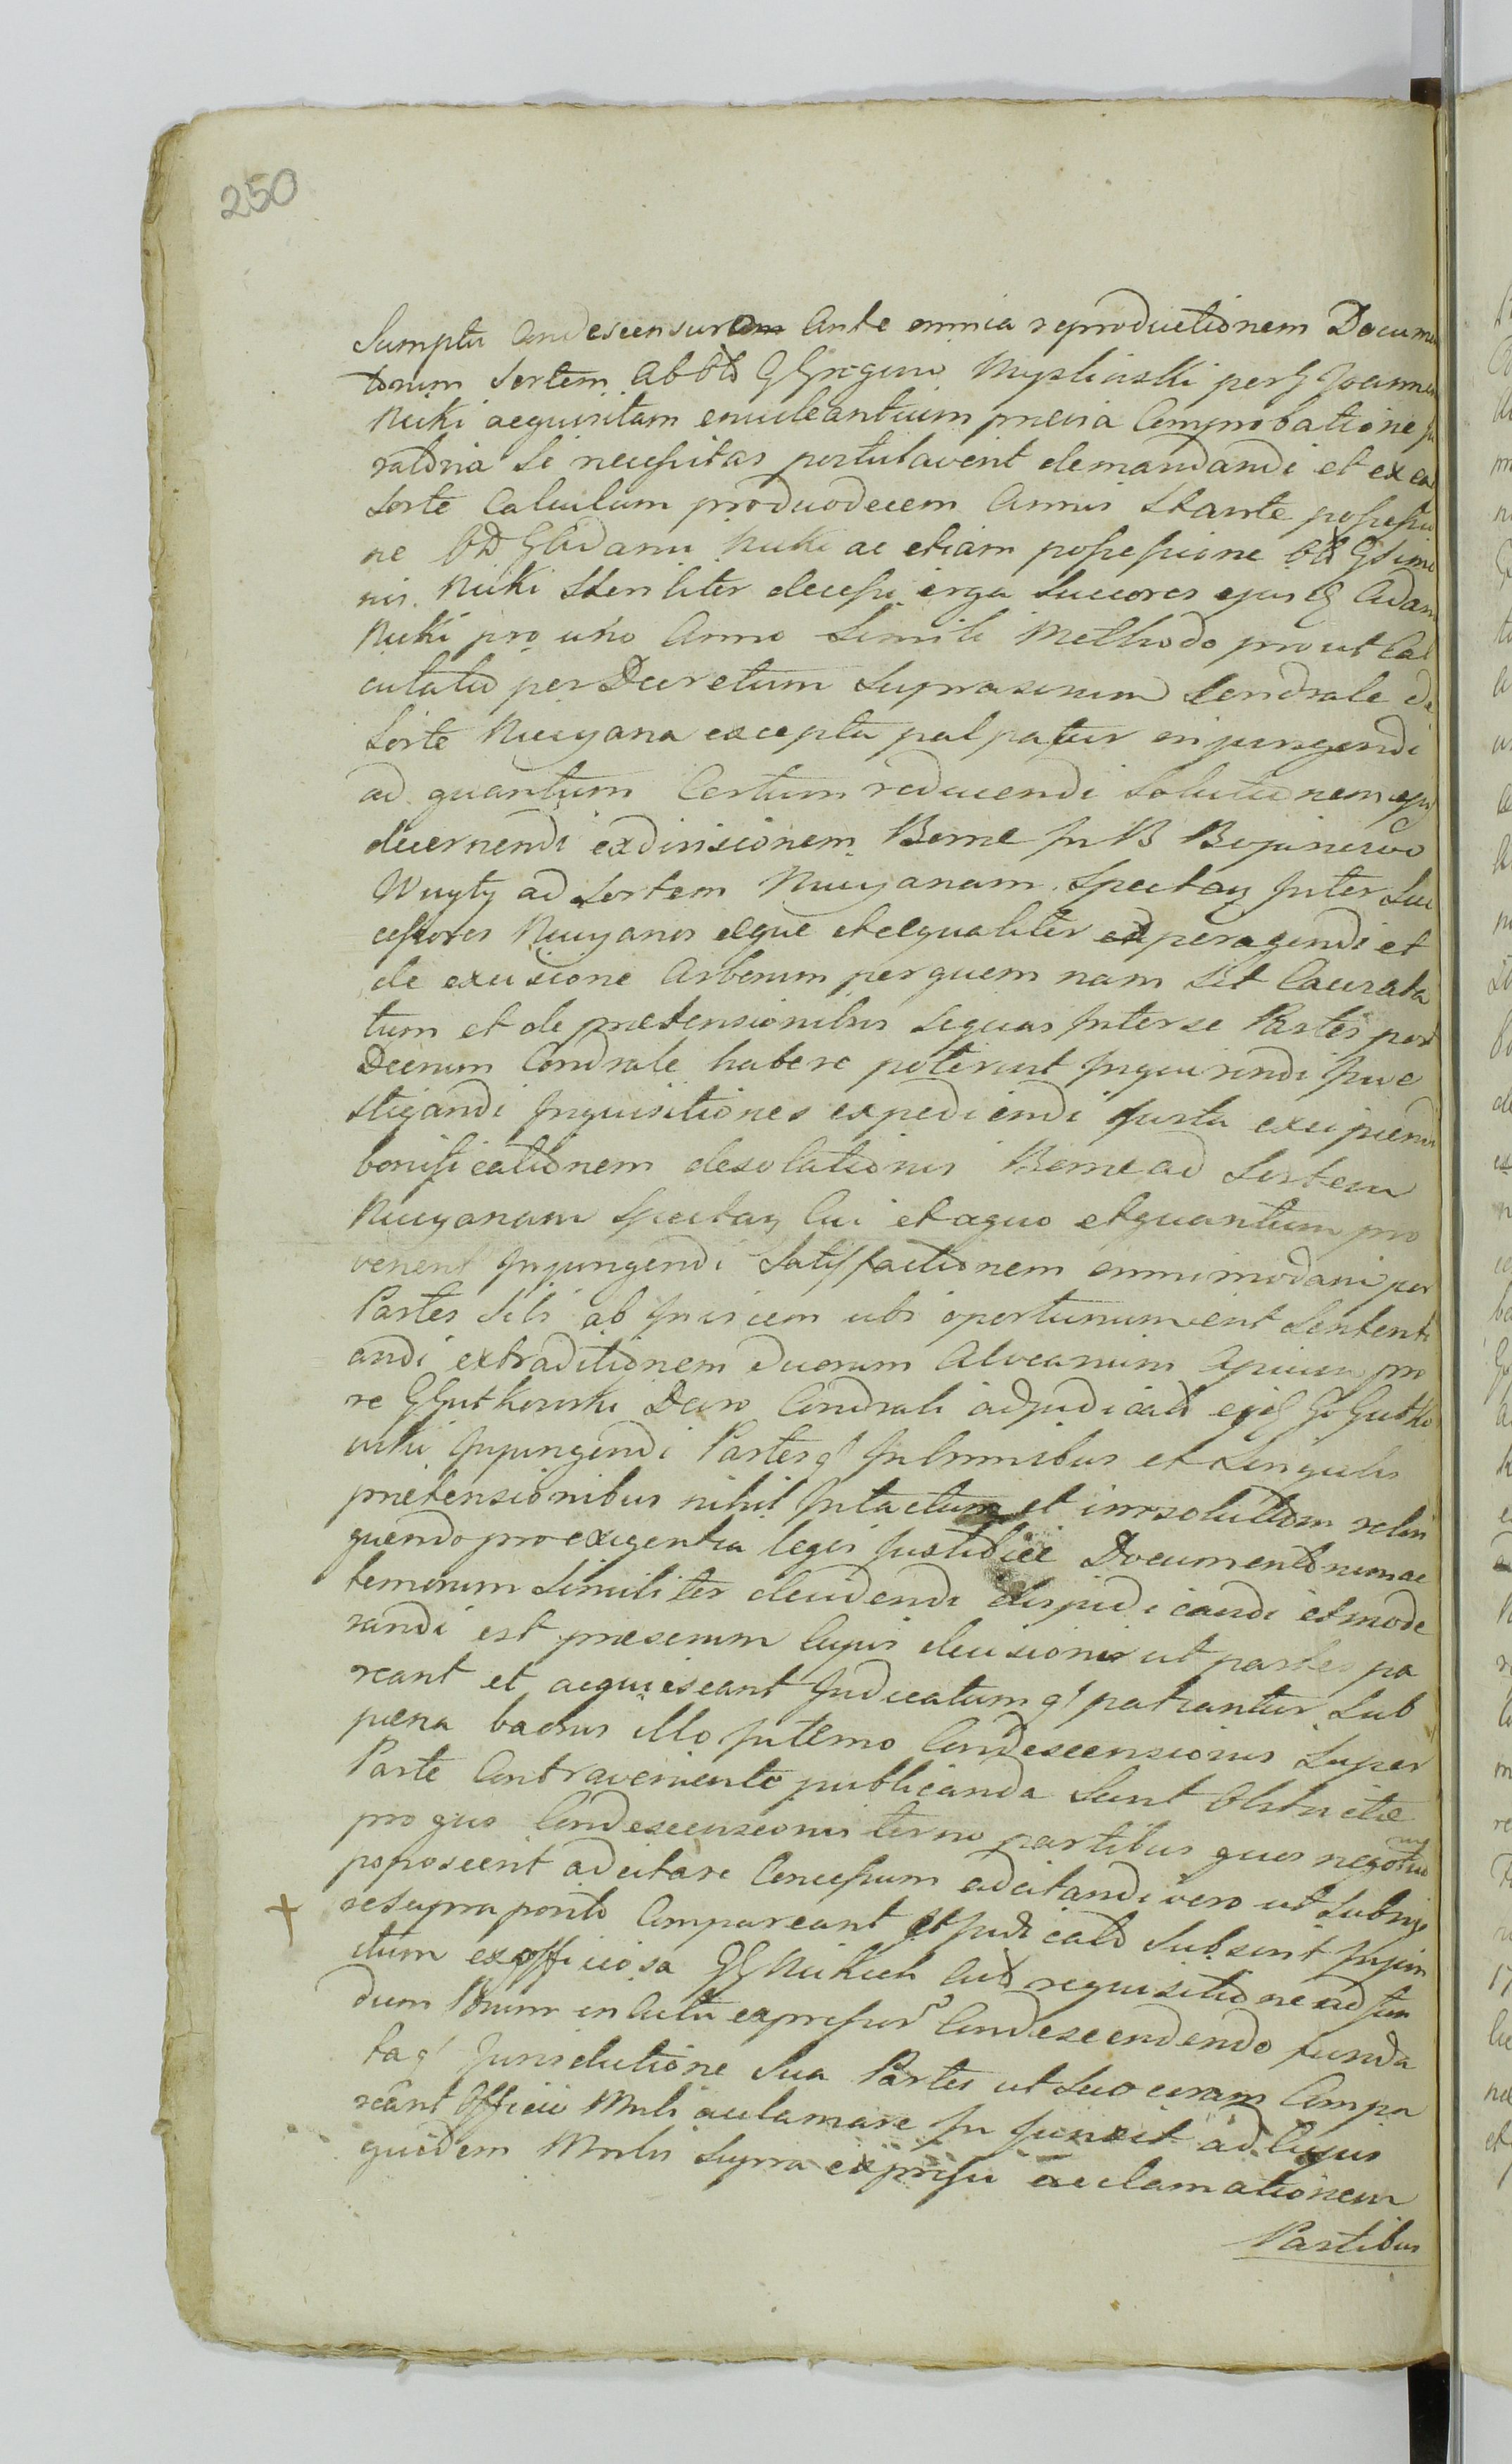 250
Sumptu Condescensuram Ante omnia reproductionem Docume
torum Sortem ab olo G Gregorio Mysliwski per G Joannem
Nicki acquisitam enucleantium previa Comprobatione ju
ratoria Si necessitas postulaverit demandandi et ex ea
Sorte Calculum pro duodecem Annis Stante possessio
ne G Adami Nicki ac etiam possessione G Simo
nis Nicki Steriliter decessi erga Succores ejus G Adam
Nicki pro uno Anno Simili Methodo prout Cal
culatio per Decretum Suprascrium Condrale de
Sorte Nicyana excepta palpatur injungendi
ad quantum Certum reducendi Solutionem ejus
decernendi exdivisionem Borrae in B
ad Sortem Nicyanam Spectan Inter Suc
cessores Nicyanos eque et equaliter peragendi et
de excisione Arborum per quem nam Sit Causata
tum et de pretensionibus Sequas Inter se Partes post
Decrum Condrale habere poterunt Inquirendi Inve
stigandi Inquisitiones expediendi Iurta excipiendi
bonificationem desolationis Borrae ad Sortem
Nicyanam Spectan Cui et a quo et quantum pro
venerit Injungendi Satisfactionem omnimodam per
Partes Sibi ab Invicem ubi oportunum erit Sententi
andi extraditionem Duorum Alvearium Apium pro
re G Gutkowski Decro Condrali adjudicato G Gutko
wski Injungendi Partes q In Omnibus et Singulis
pretensionibus nihil Intactum et irresolutum relin
quendo pro exigentia legis Justitiae Documentorum ac
temorum Similiter decidendi dijudicandi et mode
randi est praeserum Cujus decisionis ut partes pa
reant et acquiescant Judicatum q patiantur Sub
paena banis illo Intermo Condescensionis Super
Parte Contraveniente publicanda Sunt Obstrictae
pro quo Condescensionis termo partibus quos negotium
poposcerit adcitare Concessum adcitandi vero ut Subnixe
+ resupra posito Compareant et Judicato Subsint Injun
ctum ex officiosa GG Nickich requisitione ad fun
dum Bonum in Actu expressor Condescendendo funda
ta q Jurisdictione Sua Partes ut Suo coram Compa
reant Officio Mrli acclamare In Junxit ad Cujus
quidem Mrlis Supra expressi acclamationem
Partibus